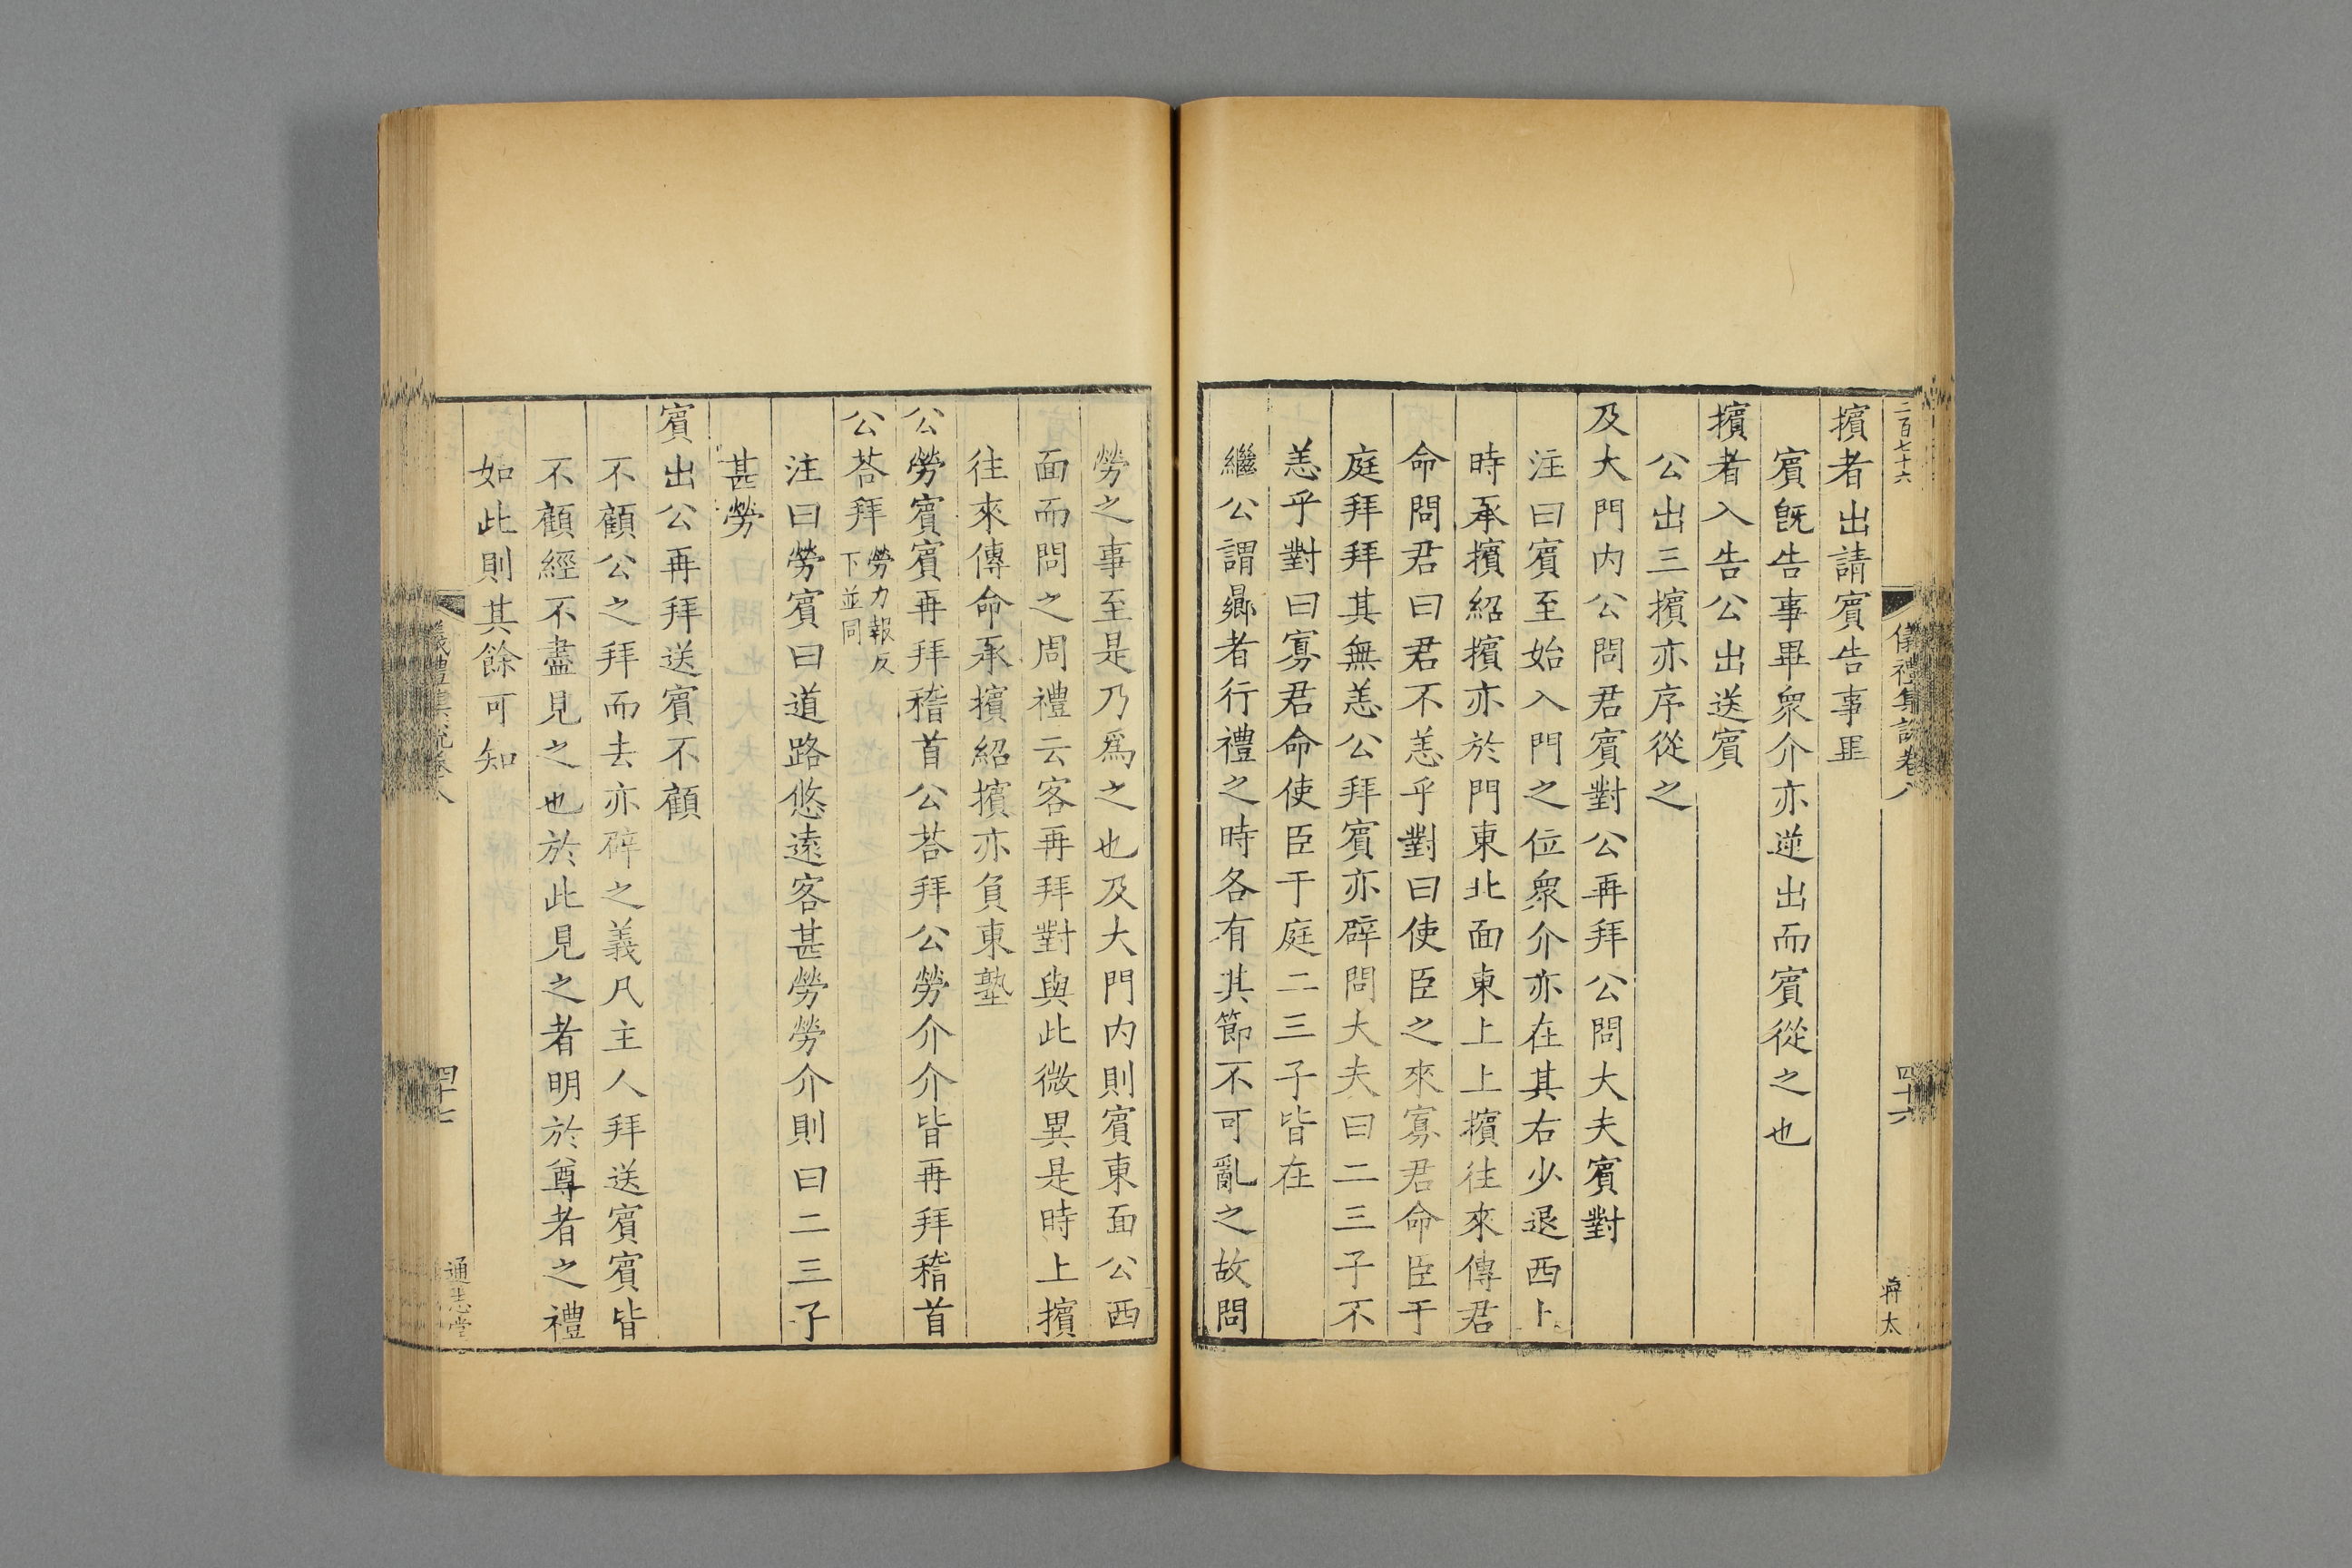 二百七十六
儀禮集說卷八
四十六
擯者出請賓告事畢
賓旣告事畢衆介亦逆出而賓從之也
擯者入告公出送賓
公出三擯亦序從之
及大門内公問君賓對公再拜公問大夫賓對
注曰賓至始入門之位衆介亦在其右少退西上
時承擯紹擯亦於門東北面東上上擯往來傳君
命問君曰君不恙乎對曰使臣之來寡君命臣于
庭拜拜其無恙公拜賓亦辟問大夫曰二三子不
恙乎對曰寡君命使臣于庭二三子皆在
繼公謂鄕者行禮之時各有其節不可亂之故問
勞之事至是乃爲之也及大門内則賓東面公西
面而問之周禮云客再拜對與此微異是時上擯
往來傳命承擯紹擯亦負東塾
公勞賓賓再拜稽首公荅拜公勞介介皆再拜稽首
公荅拜勞力報反
下並同
注曰勞賓曰道路悠遠客甚勞勞介則曰二三子
甚勞
賓出公再拜送賓不顧
不顧公之拜而去亦辟之義凡主人拜送賓賓皆
不顧經不盡見之也於此見之者明於尊者之禮
如此則其餘可知
儀禮集說卷八
四十七
通志堂